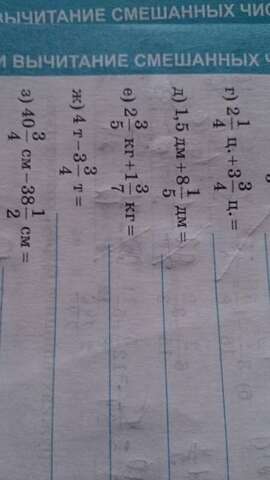 ВЫЧИТАНИЕ СМЕШАННЫХ ЧИС
И ВЫЧИТАНИЕ СМЕШАННЫХ Ч
г) 2 1/4 ц. + 3 3/4 ц. =
д) 1,5 дм + 8 1/5 дм =
е) 2 3/5 кг + 1 3/7 кг =
ж) 4 т − 3 3/4 т =
з) 40 3/4 см − 38 1/2 см =